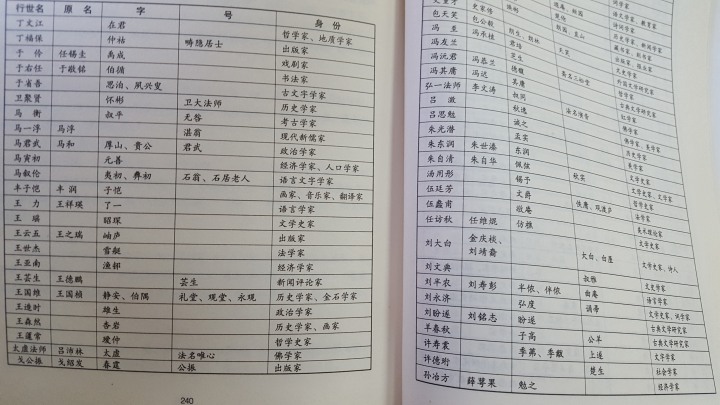 行世名 原名 字 号 身份
丁文江 在君 哲学家、地质学家
丁福保 仲祜 畴隐居士 出版家
于伶 任锡圭 禹成 戏剧家
于右任 于敬铭 伯循 书法家
于省吾 思泊、夙兴叟 古文字学家
卫聚贤 怀彬 卫大法师 历史学家
马衡 叔平 无咎 考古学家
马一浮 马浮 湛翁 现代新儒家
马君武 马和 厚山、贵公 君武 政治学家
马寅初 元善 经济学家、人口学家
马叙伦 夷初、彝初 石翁、石居老人 语言文字学家
丰子恺 丰润 子恺 画家、音乐家、翻译家
王力 王祥瑛 了一 语言学家
王瑶 昭琛 文学史家
王云五 王之瑞 岫庐 出版家
王世杰 雪艇 法学家
王亚南 渔邨 经济学家
王芸生 王德鹏 芸生 新闻评论家
王国维 王国桢 静安、伯隅 礼堂、观堂、永观 历史学家、金石学家
王造时 雄生 政治学家
王森然 杏岩 历史学家、画家
王蘧常 瑗仲 哲学史家
太虚法师 吕沛林 太虚 法名唯心 佛学家
戈公振 戈绍发 春霆 公振 出版家
240
包天笑 包公毅
冯至 冯承植
冯友兰 芝生 哲学家
冯沅君 冯恭兰 德馥
冯其庸 冯迟
弘一法师 李文涛 叔同
吕澂 秋逸 佛学家
吕思勉 诚之 历史学家
朱光潜 孟实 美学家
朱东润 朱世溱 东润
朱自清 朱自华 佩弦 秋实
汤用彤 锡予
伍廷芳 文爵 法学家
伍蠡甫 敬庵
任访秋 任维焜 仿樵 文学史家
刘大白 金庆棪、刘靖裔 大白、白屋 文学史家、诗人
刘文典 叔雅 文史学家
刘半农 刘寿彭 半侬、伴侬 曲庵 语言学家
刘永济 弘度 诵帚 文学史家、词学家
刘盼遂 刘铭志 盼遂 古典文学研究家
羊春秋 子高 公羊 古典文学研究家
许寿裳 季茀、季黻 上遂 文学家
许德珩 楚生 社会学家
孙冶方 薛萼果 勉之 经济学家